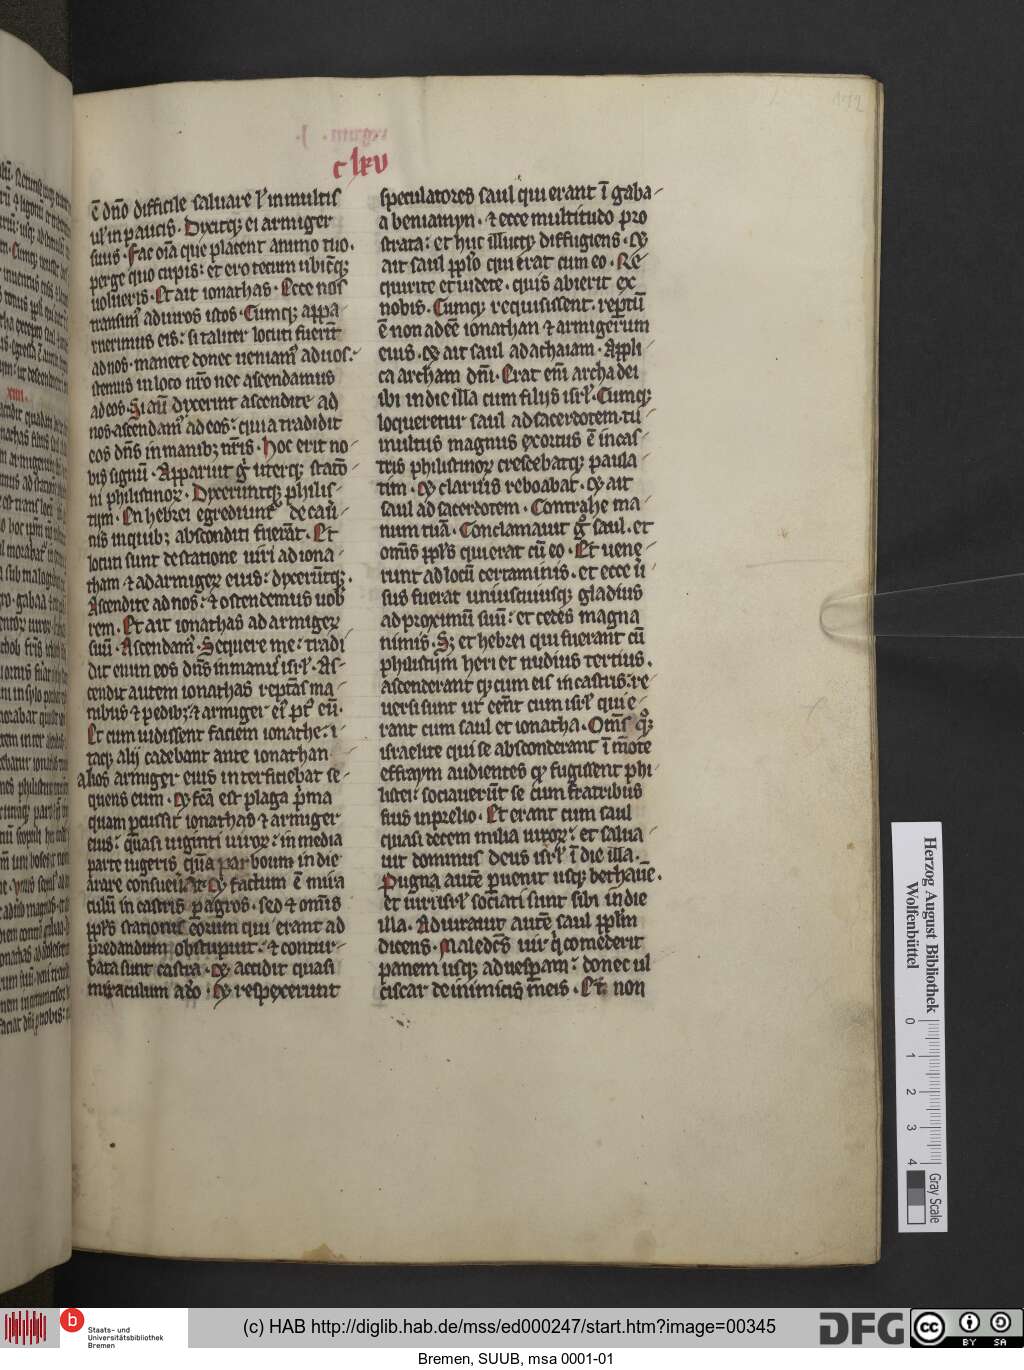 clxv
ē dn̄o difficile saluare ul' in multis
ul' in paucis. Dixitq; ei armiger
suus. Fac oīa que placent animo tuo.
perge quo cupis: et ero tecum ubicūq;
uolueris. Et ait ionathas. Ecce nos
transim' ad uiros istos. Cumq; appa-
ruerimus eis: si taliter locuti fuerīt
ad nos. manete donec ueniam' ad uos:
stemus in loco nr̄o nec ascendamus
ad eos. Si aūt dixerint ascendite ad
nos. ascendam' ad eos: quia tradidit
eos dn̄s in manib; nr̄is. hoc erit no-
bis signū. Apparuit g° uterq; statō-
ni philistinor. Dixeruntq; philis-
tijm. En hebrei egrediunt' de cau-
nis in quib; absconditi fuerāt. Et
locuti sunt de statione uiri ad iona-
tham & ad armiger eius: dixerūtq;.
Ascendite ad nos: & ostendemus uob'
rem. Et ait ionathas ad armiger
suū. Ascendam'. Sequere me: tradi
dit enim eos dn̄s in manus isrl'. As-
cendit autem ionathas reptās ma-
nibus & pedib; & armiger ei' p' eū.
Et cum uidissent faciem ionathe: i-
taq; alij cadebant ante ionathan
alios armiger eius interficiebat se-
quens eum. Et fcā est plaga p'ma
quam percussit ionathas & armiger
eius: quasi uiginti uiror: in media
parte iugeris quā par boum in die
arare consueuit. Et factum ē mira
culū in castris per agros. sed & omīs
ppl's stationis eorum qui erant ad
predandum obstupuit: & contur-
bata sunt castra. Et accidit quasi
miraculum a do. Et respexerunt
speculatores saul qui erant ī gaba-
a beniamyn. & ecce multitudo pro
strata: et huc illucq; diffugiens. Et
ait saul pplo qui erat cum eo. Re
quirite et uidete. quis abierit ex
nobis. Cumq; requisissent. reptū
ē non adeē ionathan & armigerum
eius. et ait saul ad achaiam. Appli-
ca archam dn̄i. Erat enī archa dei
ibi in die illa cum filijs isrl'. Cumq;
loqueretur saul ad sacerdotem. tu-
multus magnus exortus ē in cas-
tris philistinor crescebatq; paula-
tim. et clarius reboabat. et ait
saul ad sacerdotem. Contrahe ma-
num tuā. Conclamauit g° saul. et
omīs ppl's qui erat cū eo. Et uene-
runt ad locū certaminis. et ecce u-
sus fuerat uniuscuiusq; gladius
ad proximū suū: et cedes magna
nimis. S; et hebrei qui fuerant cū
philistijm heri et nudius tertius.
ascenderant q; cum eis in castris: re-
uersi sunt ut eēnt cum isrl' qui e-
rant cum saul et ionatha. Omīs q°q;
israelite qui se absconderant ī mōte
effraym audientes q' fugissent phi-
listei: sociauerūt se cum fratribus
suis in prelio. Et erant cum saul
quasi decem milia uiror: et salua-
uit dominus deus isrl' ī die illa.
Pugna autē puenit usq; bethaue.
et uiri isrl' sociati sunt sibi in die
illa. Adiurauit autē saul pplm
dicens. Maledc̄s uir q' comederit
panem usq; ad uesperam: donec ul
ciscar de inimicis meis. Et non
Herzog August Bibliothek
Wolfenbüttel
0 1 2 3 4
Gray Scale
b Staats- und
Universitätsbibliothek
Bremen
(c) HAB http://diglib.hab.de/mss/ed000247/start.htm?image=00345
DFG
cc BY SA
Bremen, SUUB, msa 0001-01